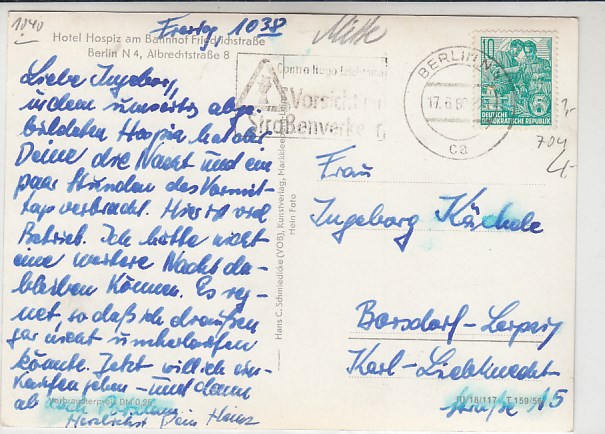 1040
Freitag 10 30
Mitte
Hotel Hospiz am Bahnhof Friedrichstraße
Berlin N 4, Albrechtstraße 8
Liebe Ingeborg,
in dem umseitig abge-
bildeten Hospiz hat der
Deine die Nacht und ein
paar Stunden des Vormit-
tags verbracht. Hier ist viel
Betrieb. Ich hätte nicht
eine weitere Nacht da-
bleiben können. Es reg-
net, so daß ich draußen
gar nicht umherlaufen
könnte. Jetzt will ich ein-
kaufen gehen – und dann
ab nach Potsdam
Herzlichst Dein Heinz
Verbraucherpreis DM 0,25
Hans C. Schmiedicke (VOB), Kunstverlag, Markkleeberg
Hein Foto
Vorsicht
Straßenverke
BERLIN N
17. 6.
ca
10
5
DEUTSCHE
DEMOKRATISCHE REPUBLIK
704
Frau
Ingeborg Käschele
Borsdorf-Leipzig
Karl-Liebknecht-
straße 15
III/18/117 T 159/56